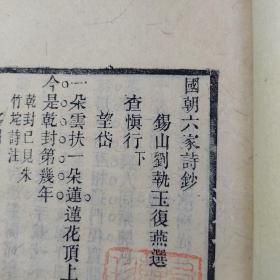 國朝六家詩鈔
錫山劉執玉復燕選
查愼行下
望岱
一朶雲扶一朶蓮蓮花頂上
今是乾封第幾年
乾封已見朱
竹垞詩注